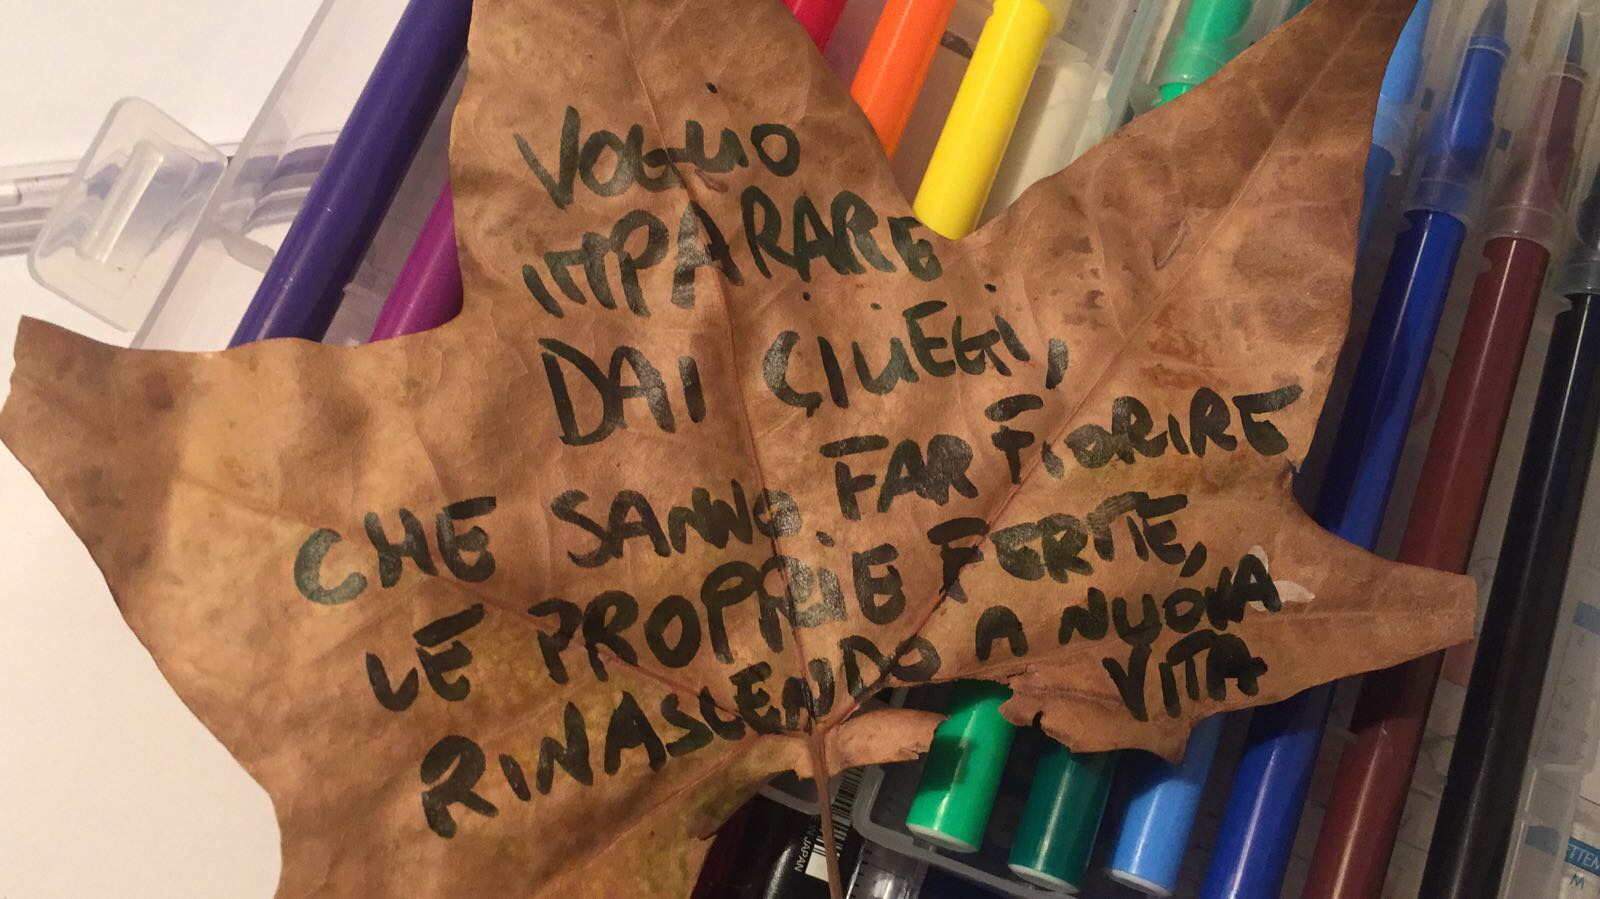 VOGLIO
IMPARARE
DAI CILIEGI,
CHE SANNO FAR FIORIRE
LE PROPRIE FERITE,
RINASCENDO A NUOVA
VITA
IN JAPAN